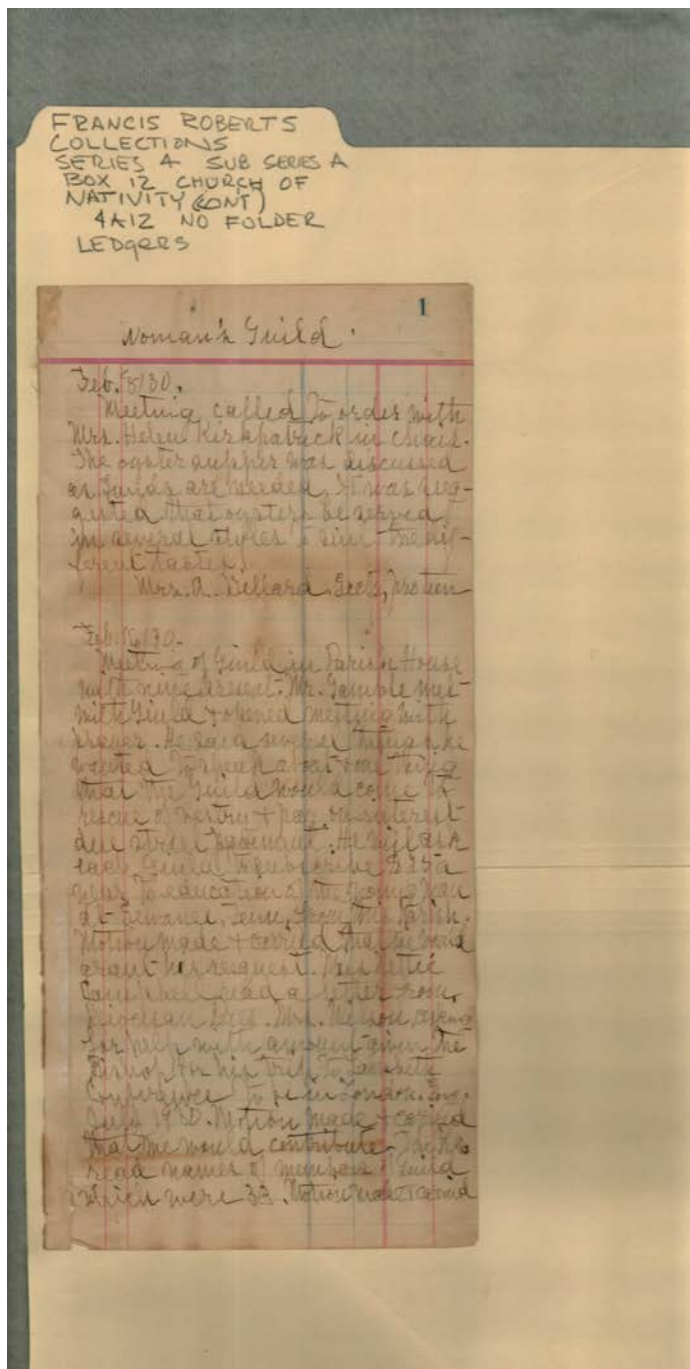 FRANCIS ROBERTS
COLLECTIONS
SERIES 4 SUB SERIES A
BOX 12 CHURCH OF
NATIVITY (CONT)
4A12 NO FOLDER
LEDgERS
1
Woman's Guild.
Feb. /30.
Meeting called to order with
Mrs. Helen Kirkpatrick in chair.
The oyster supper was discussed
as funds are needed. It was sug-
gested that oysters be served
in several styles to suit the dif-
ferent tastes.
Mrs. A.
Feb. /30.
Meeting of Guild in Parish House
with nine present. Mr. Gamble met
with Guild + opened meeting with
prayer. He said several things he
wanted to speak about one thing
that the Guild would come to
rescue of vestry + pay interest
due street pavement. He will ask
each Guild to subscribe a
year to education of the young man
at Sewanee, Tenn. from this Parish.
Motion made + carried that we would
grant his request. Miss
Campbell read a letter from
Mrs.
for help with amount given the
Bishop for his trip to Lambeth
Conference to be in London
July 1930. Motion made + carried
that we would contribute.
read names of members of Guild
which were 33. Motion made + carried